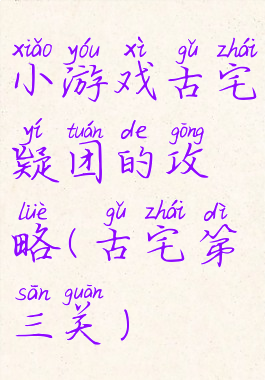 xiǎo yóu xì gǔ zhái
小游戏古宅
yí tuán de gōng
疑团的攻
lüè gǔ zhái dì
略(古宅第
sān guān
三关)